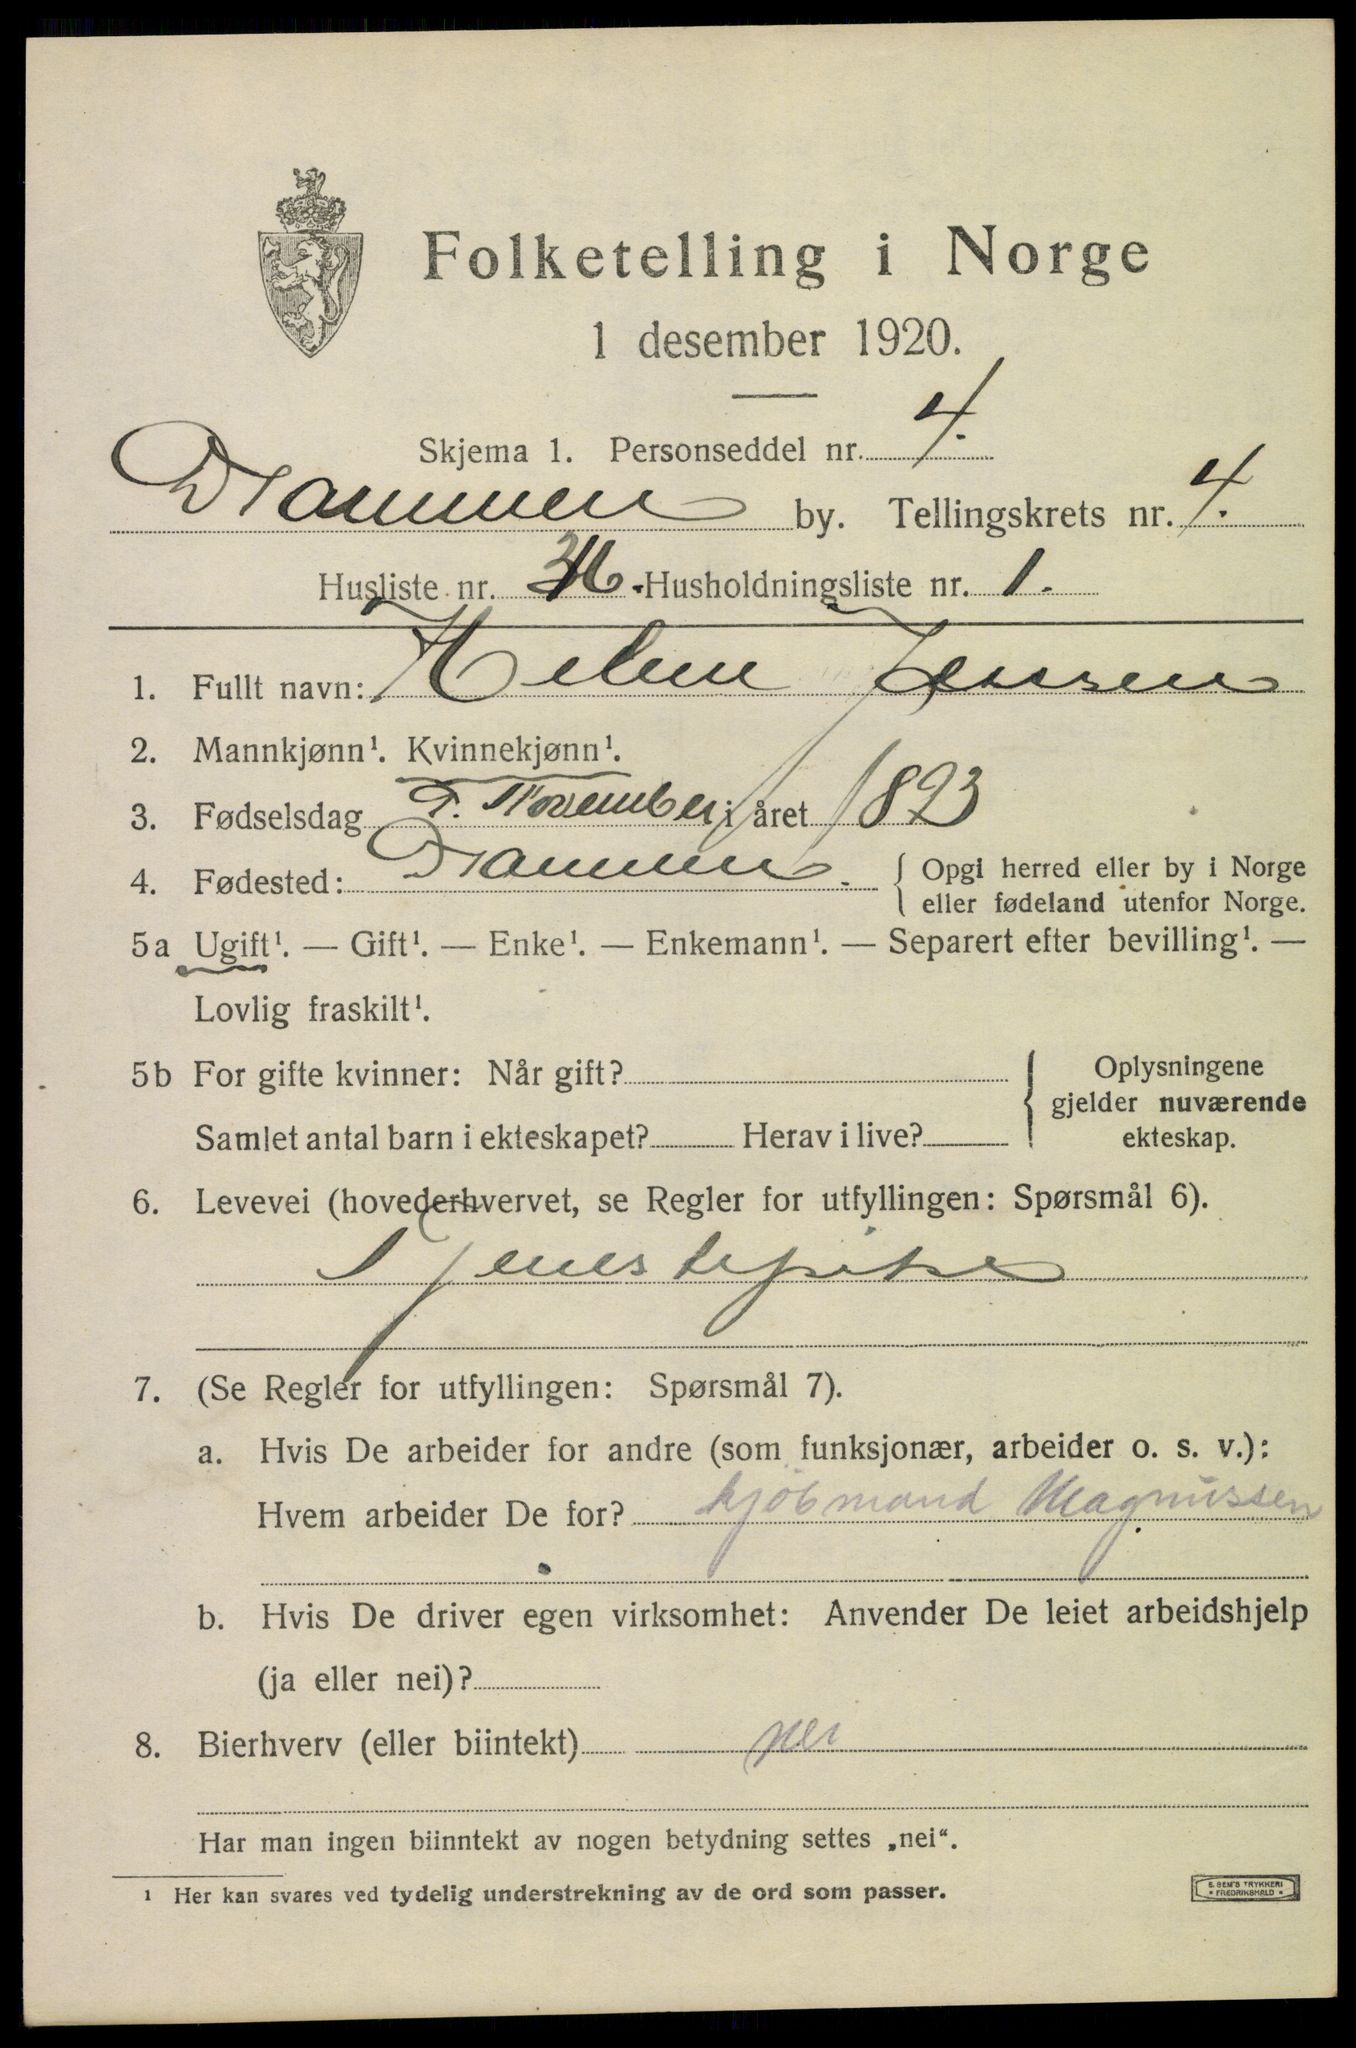 Folketelling i Norge
1 desember 1920.
Skjema 1. Personseddel nr. 4.
Drammen by. Tellingskrets nr. 4.
Husliste nr. Husholdningsliste nr. 1.
1. Fullt navn: Helene Jenssen
2. Mannkjønn¹. Kvinnekjønn¹.
3. Fødselsdag November i året 1893
4. Fødested: Drammen. { Opgi herred eller by i Norge
eller fødeland utenfor Norge.
5a Ugift¹. — Gift¹. — Enke¹. — Enkemann¹. — Separert efter bevilling¹. —
Lovlig fraskilt¹.
5b For gifte kvinner: Når gift? { Oplysningene
gjelder nuværende
Samlet antal barn i ekteskapet? Herav i live? ekteskap.
6. Levevei (hovederhvervet, se Regler for utfyllingen: Spørsmål 6).
Tjenestepike
7. (Se Regler for utfyllingen: Spørsmål 7).
a. Hvis De arbeider for andre (som funksjonær, arbeider o. s. v.):
Hvem arbeider De for? kjöbmand Magnussen
b. Hvis De driver egen virksomhet: Anvender De leiet arbeidshjelp
(ja eller nei)?
8. Bierhverv (eller biintekt) nei
Har man ingen biinntekt av nogen betydning settes „nei“.
¹ Her kan svares ved tydelig understrekning av de ord som passer.
E. SEM'S TRYKKERI
* FREDRIKSHALD *